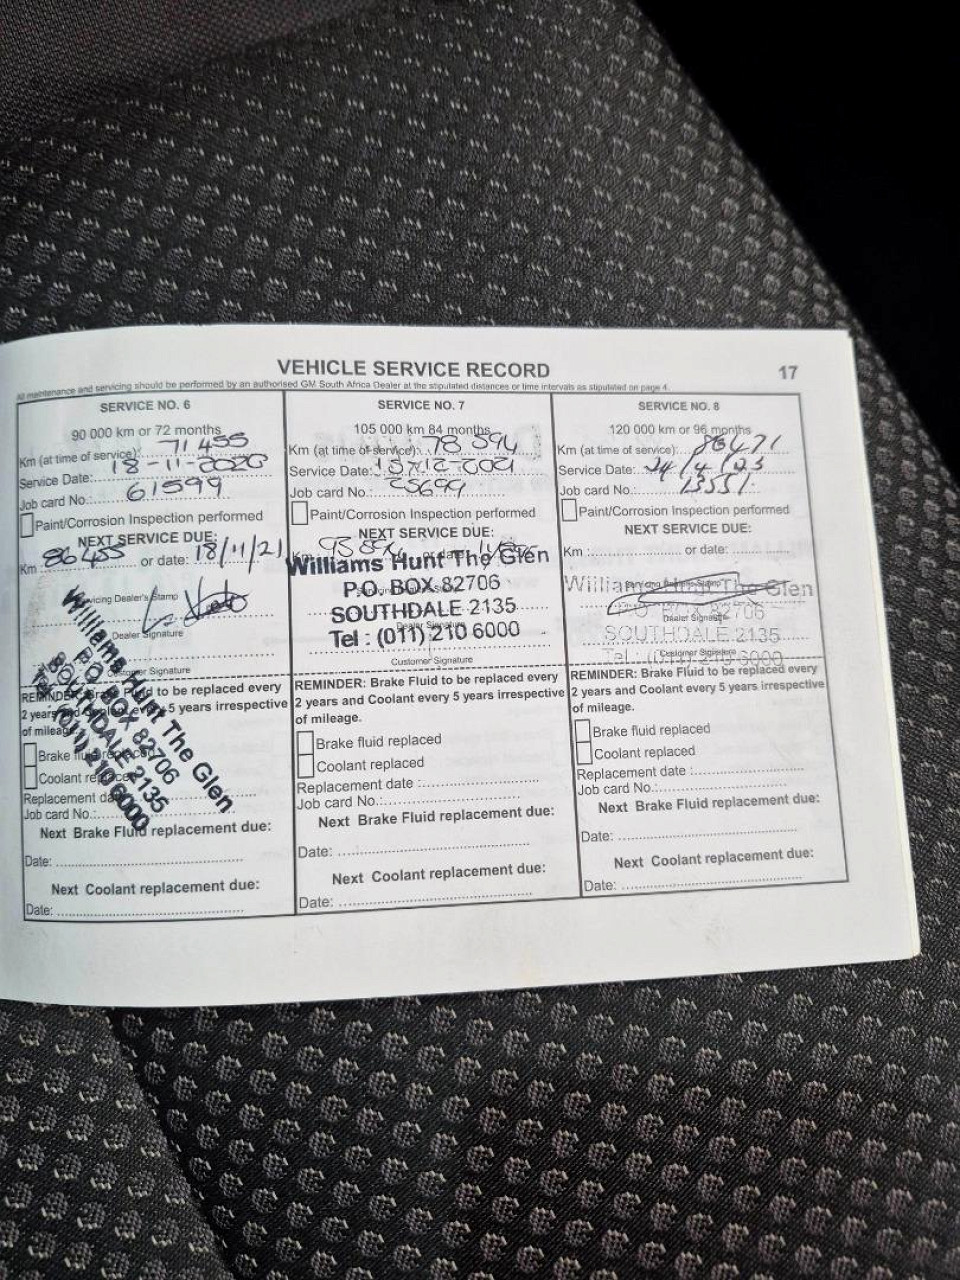 VEHICLE SERVICE RECORD
17
All maintenance and servicing should be performed by an authorised GM South Africa Dealer at the stipulated distances or time intervals as stipulated on page 4.
SERVICE NO. 6
90 000 km or 72 months
Km (at time of service): 71 455
Service Date: 18-11-2020
Job card No.: 61599
Paint/Corrosion Inspection performed
NEXT SERVICE DUE:
Km 86455 or date: 18/11/21
Servicing Dealer's Stamp
Dealer Signature
Customer Signature
Williams Hunt The Glen
P.O. BOX 82706
SOUTHDALE 2135
Tel : (011) 210 6000
REMINDER: Brake Fluid to be replaced every
2 years and Coolant every 5 years irrespective
of mileage.
Brake fluid replaced
Coolant replaced
Replacement date
Job card No.:
Next Brake Fluid replacement due:
Date:
Next Coolant replacement due:
Date:
SERVICE NO. 7
105 000 km 84 months
Km (at time of service): 78 594
Service Date:
Job card No.: 25699
Paint/Corrosion Inspection performed
NEXT SERVICE DUE:
Km or date:
Williams Hunt The Glen
P.O. BOX 82706
SOUTHDALE 2135
Tel : (011) 210 6000
Dealer Signature
Customer Signature
REMINDER: Brake Fluid to be replaced every
2 years and Coolant every 5 years irrespective
of mileage.
Brake fluid replaced
Coolant replaced
Replacement date :
Job card No.:
Next Brake Fluid replacement due:
Date:
Next Coolant replacement due:
Date:
SERVICE NO. 8
120 000 km or 96 months
Km (at time of service): 86471
Service Date: 24/4/23
Job card No.: 13551
Paint/Corrosion Inspection performed
NEXT SERVICE DUE:
Km : or date:
Servicing Dealer's Stamp
Williams Hunt The Glen
P.O. BOX 82706
Dealer Signature
SOUTHDALE 2135
Customer Signature
Tel : (011) 210 6000
REMINDER: Brake Fluid to be replaced every
2 years and Coolant every 5 years irrespective
of mileage.
Brake fluid replaced
Coolant replaced
Replacement date :
Job card No.:
Next Brake Fluid replacement due:
Date:
Next Coolant replacement due:
Date: